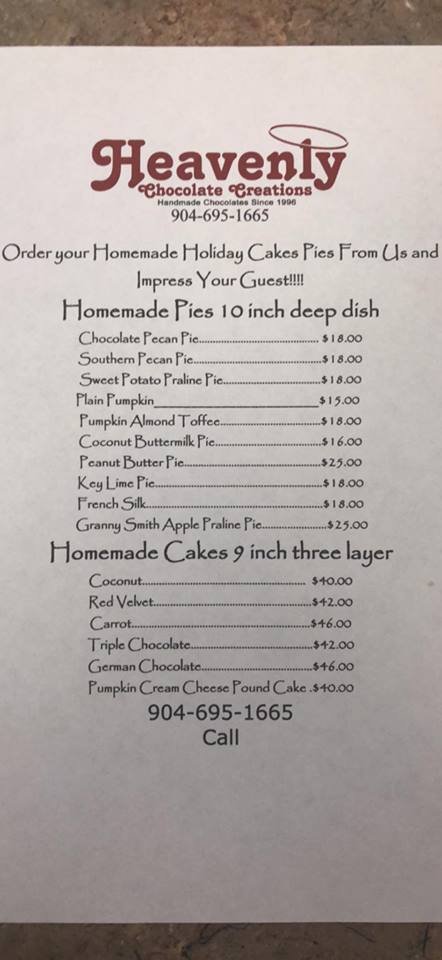 Heavenly
Chocolate Creations
Handmade Chocolates Since 1996
904-695-1665
Order your Homemade Holiday Cakes Pies From Us and
Impress Your Guest!!!!
Homemade Pies 10 inch deep dish
Chocolate Pecan Pie........................................ $18.00
Southern Pecan Pie...........................................$18.00
Sweet Potato Praline Pie.................................$18.00
Plain Pumpkin___________________________$15.00
Pumpkin Almond Toffee..................................$18.00
Coconut Buttermilk Pie....................................$16.00
Peanut Butter Pie..............................................$25.00
Key Lime Pie........................................................$18.00
French Silk...........................................................$18.00
Granny Smith Apple Praline Pie......................$25.00
Homemade Cakes 9 inch three layer
Coconut...................................................... $40.00
Red Velvet.....................................................$42.00
Carrot............................................................$46.00
Triple Chocolate.........................................$42.00
German Chocolate.....................................$46.00
Pumpkin Cream Cheese Pound Cake .$40.00
904-695-1665
Call